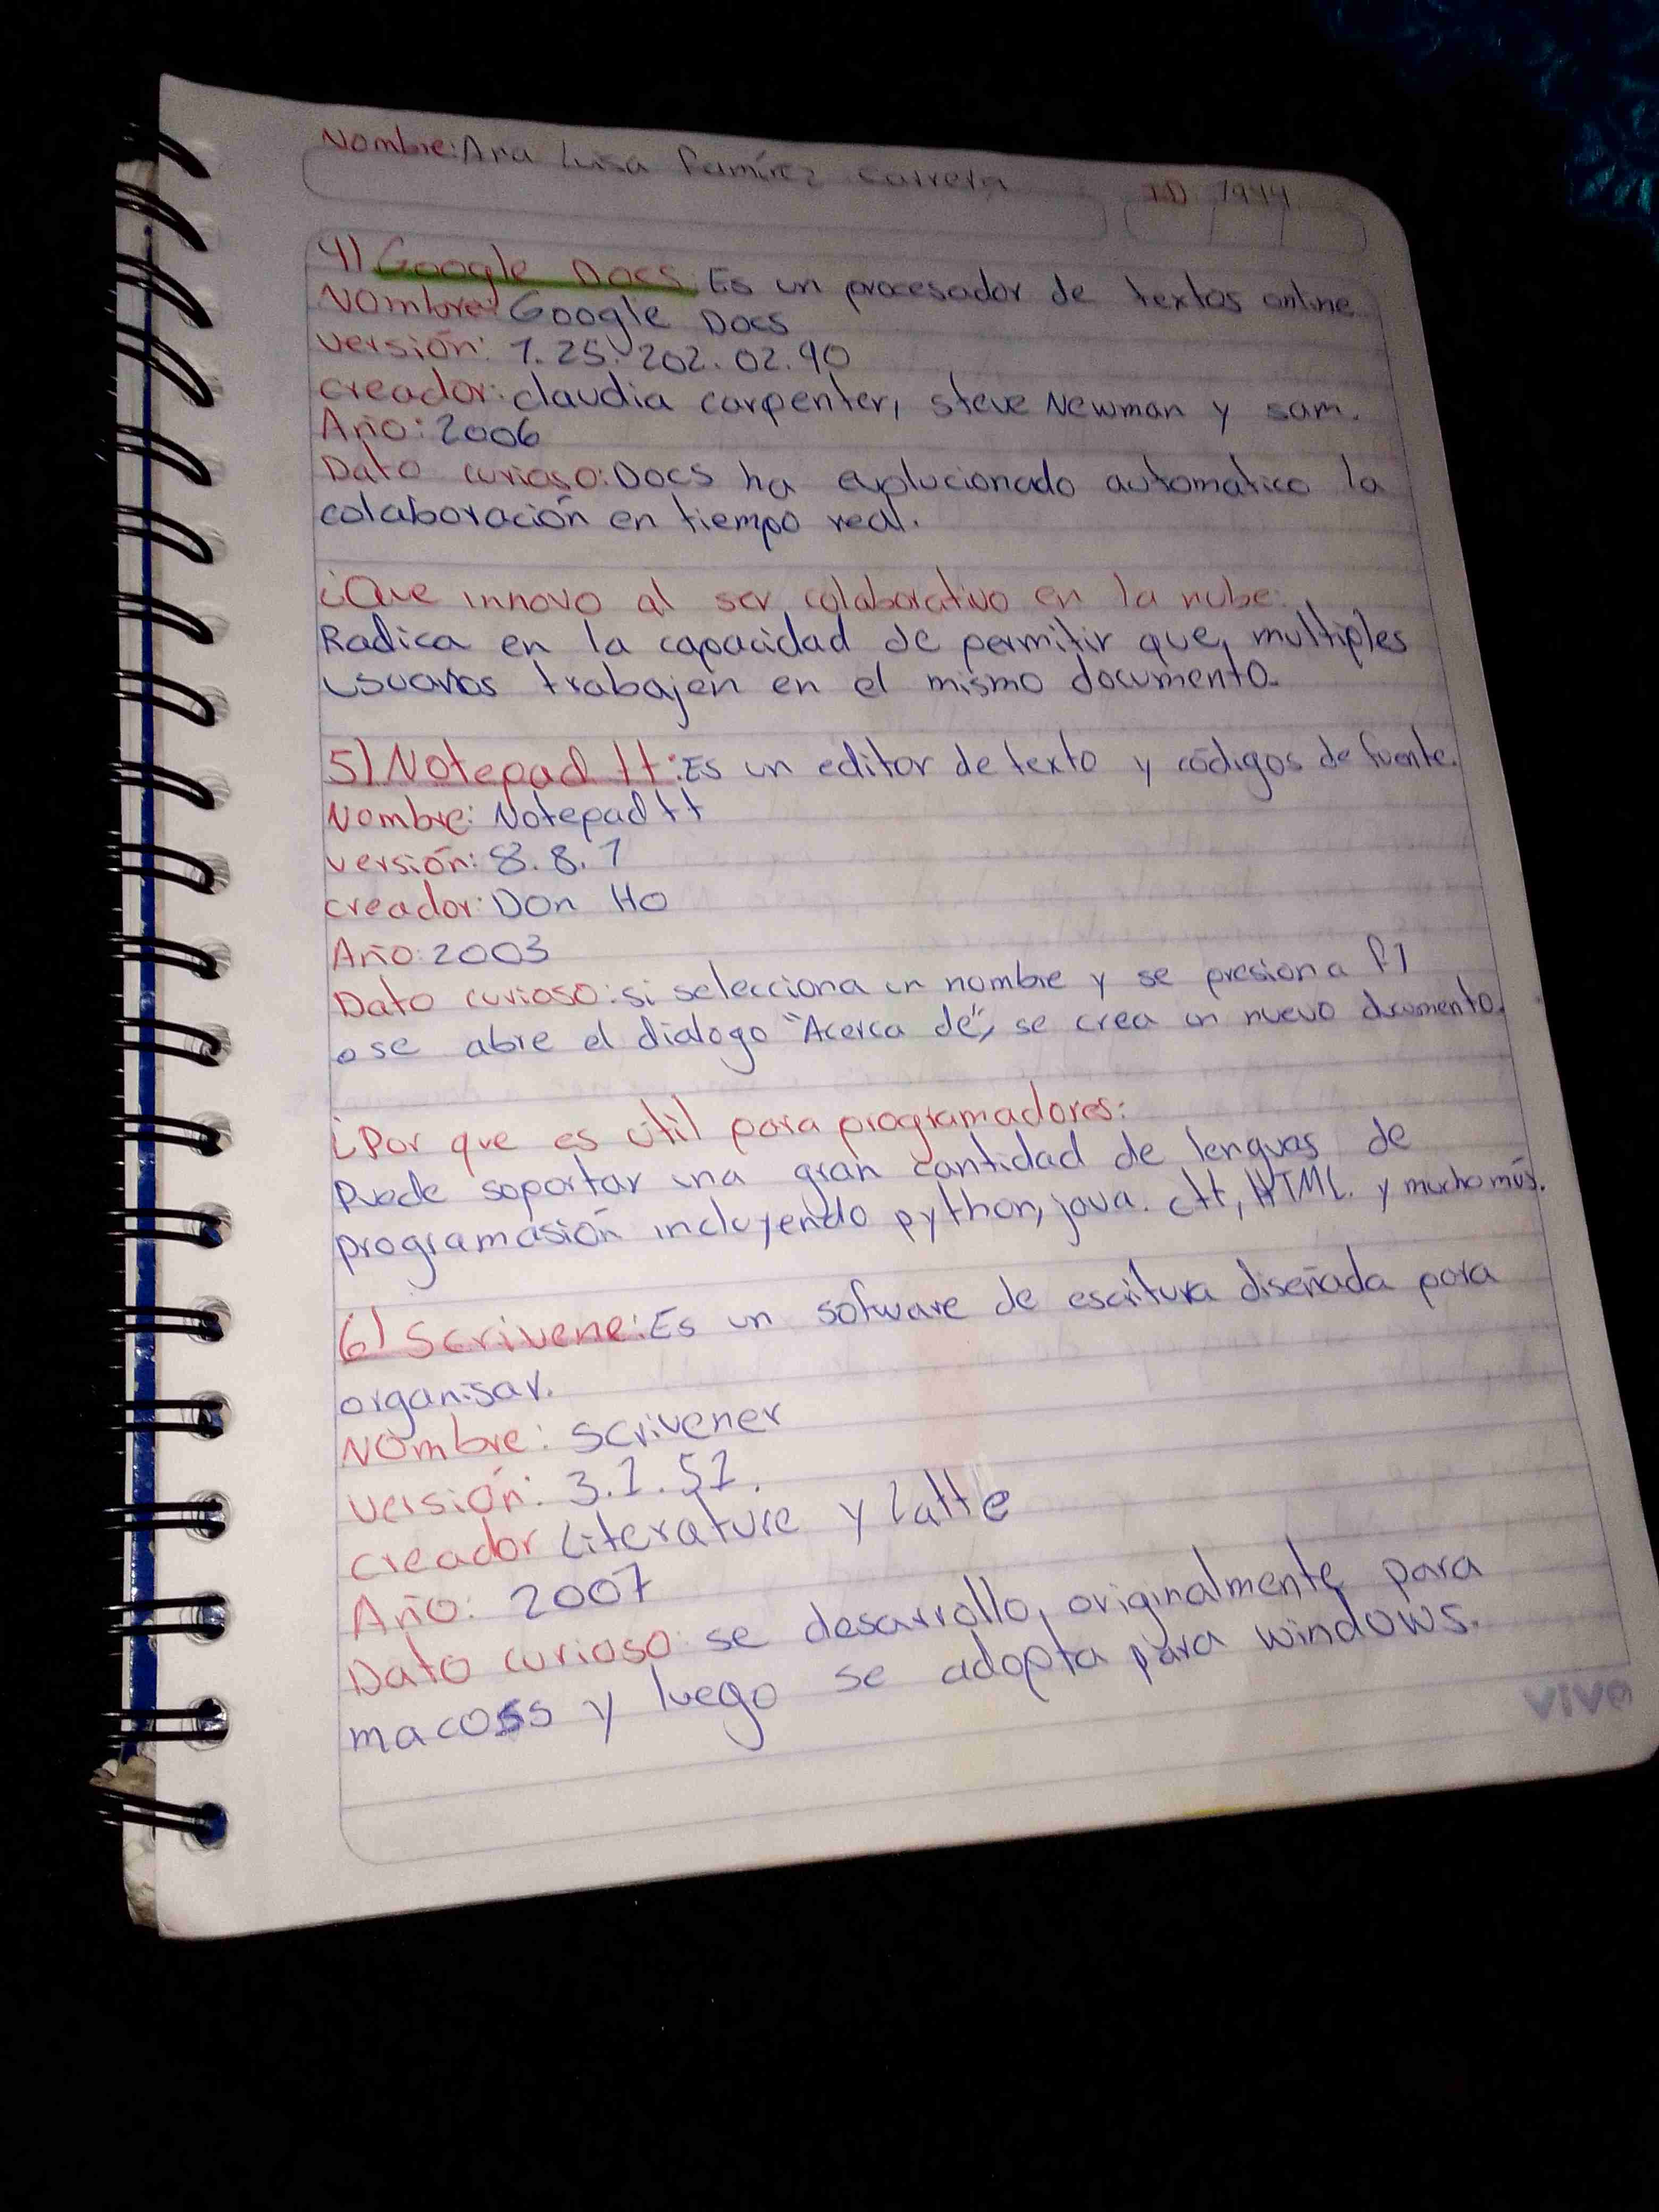 Nombre: Ana Luisa Ramírez Carrera ID 1944
4) Google Docs: Es un procesador de textos online
Nombre: Google Docs
versión: 1.25.202.02.90
creador: claudia carpenter, steve Newman y sam.
Año: 2006
Dato curioso: Docs ha evolucionado automatico la
colaboración en tiempo real.
¿Que innovo al ser colaborativo en la nube:
Radica en la capacidad de permitir que, multiples
usuarios trabajen en el mismo documento.
5) Notepad ++: Es un editor de texto y códigos de fuente.
Nombre: Notepad++
versión: 8.8.1
creador: Don Ho
Año: 2003
Dato curioso: si selecciona un nombre y se presiona F1
o se abre el dialogo "Acerca de", se crea un nuevo documento.
¿Por que es útil para programadores:
Puede soportar una gran cantidad de lenguas de
programasión incluyendo python, java. c++, HTML. y mucho más.
6) Scrivene: Es un sofware de escritura diseñada para
organisar.
Nombre: scrivener
versión: 3.1.51.
creador Literature y latte
Año: 2007
Dato curioso: se desarrollo, originalmente para
macoss y luego se adopta para windows.
vivo